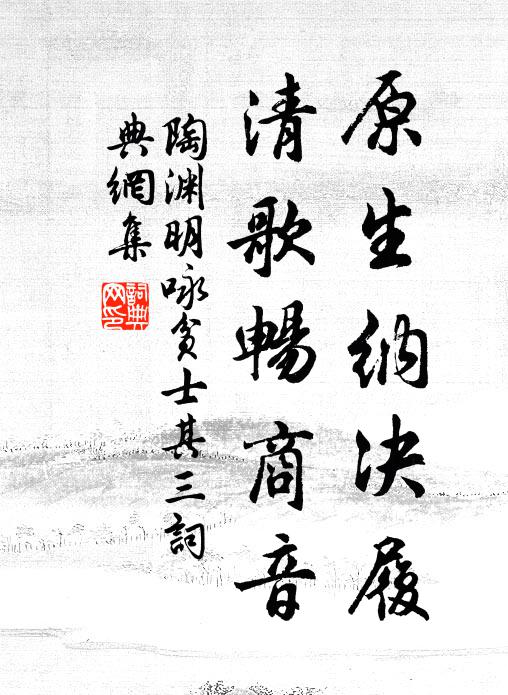 原生納决履
清歌暢商音
陶渊明咏貧士其三詞
典網集
詞典
网印